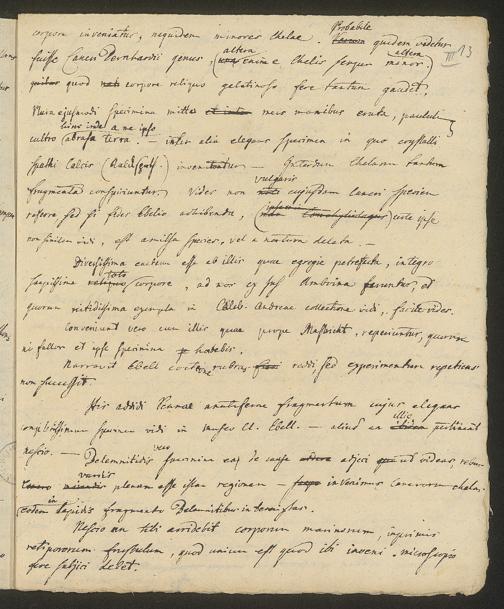 III 13
corpora inveniatur, nequidem minores chelae. Probabile quidem videtur
fuisse Cancri Bernhardii genus, (altera enim e chelis semper altera minor)
quod corpore reliquo gelatinoso fere tantum gaudet.
Plura ejusmodi specimina mitto meis manibus eruta, paululum
cultro abrasa terra. — inter alia elegans specimen in quo crystalli
spathi calcis (Kalchspath.) — Interdum chelarum tantum
fragmenta conspiciuntur. Videor non vulgaris cujusdam cancri speciem
referre, sed si fides Ebelio adhibenda, certe ipse
non similem vidi, est amissa species, vel a natura deleta. —
Diversissima eadem esse ab illis quae egregie petrefacta, integro
saepissime toto corpore, ad nos ex Ins. Amboina feruntur, et
quorum nitidissima exempla in Celeb. Andreae collectione vidi, facile vides.
Conveniunt vero cum illis quae prope Mastricht, reperiuntur, quorum
ni fallor et ipse specimina habebis.
Narravit Ebell coctione rubra reddi, sed experimentum repetens
non successit.
His addidi Pennae anatiferae fragmentum cujus elegans
completissimum specimen vidi in museo Cl. Ebell. — aliud an illic pertineat
nescio. — Belemnitidis vero specimina eas de causa adjeci ut videas,
variis plenam esse istam regionem — invenimus cancrorum chelas
in eodem lapidis fragmento Belemnitibus intermistas.
Nescio an tibi arridebit corporum marinorum, inprimis
retiporarum frustulum, quod unicum est quod ibi inveni. Microscopio
fere subjici debet.